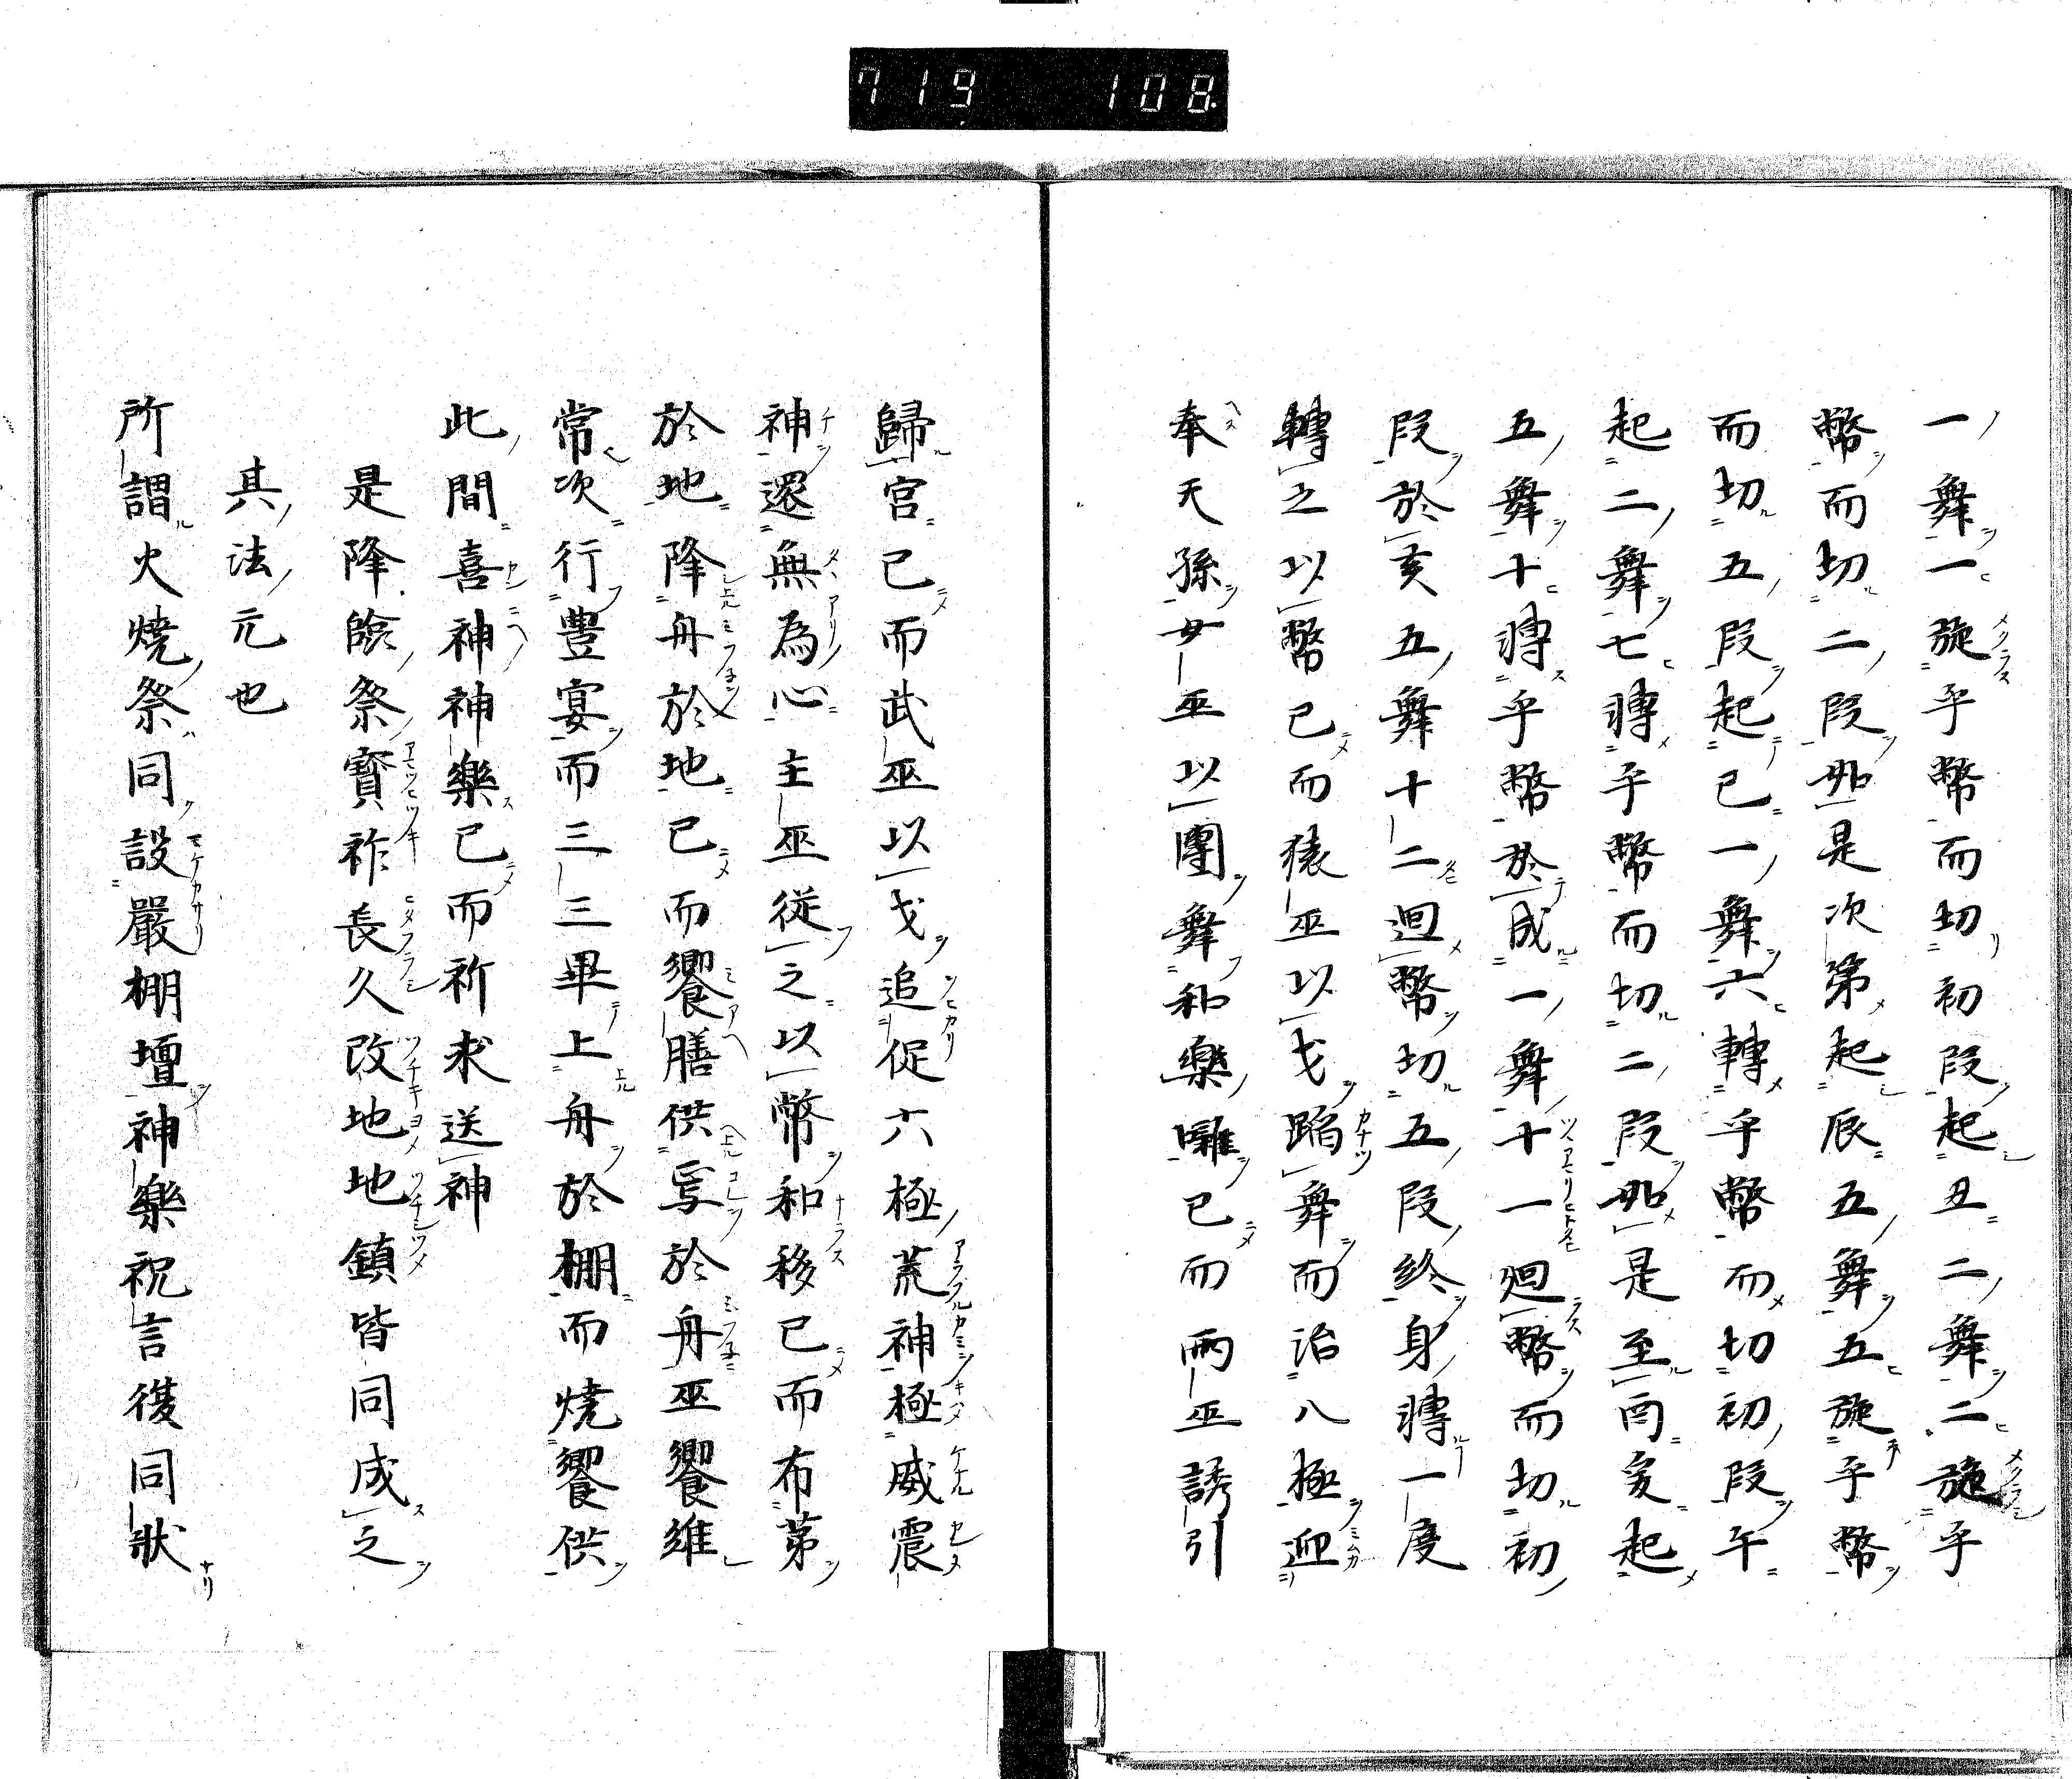 719 108
一舞一旋乎幣而切初段起丑二舞二旋乎
幣而切二段如是次第起辰五舞五旋乎幣
而切五段起已一舞六轉乎幣而切初段午
起二舞七轉乎幣而切二段如是至酉亥起
五舞十轉乎幣於成一舞十一廻幣而切初
段於亥五舞十二廻幣切五段終身轉一度
轉之以幣已而猿巫以戈蹈舞而治八極迎
奉天孫女巫以團舞和樂囃已而兩巫誘引
歸宮已而武巫以戈追促六極荒神極威震
神還無為心主巫從之以幣和移已而布茅
於地降舟於地已而饗膳供写於舟巫饗維
常次行豐宴而三三畢上舟於棚而燒饗供
此間喜神神樂已而祈求送神
是降險祭寶祚長久改地地鎮皆同成之
其法元也
所謂火燒祭同設嚴棚壇神樂祝言復同狀